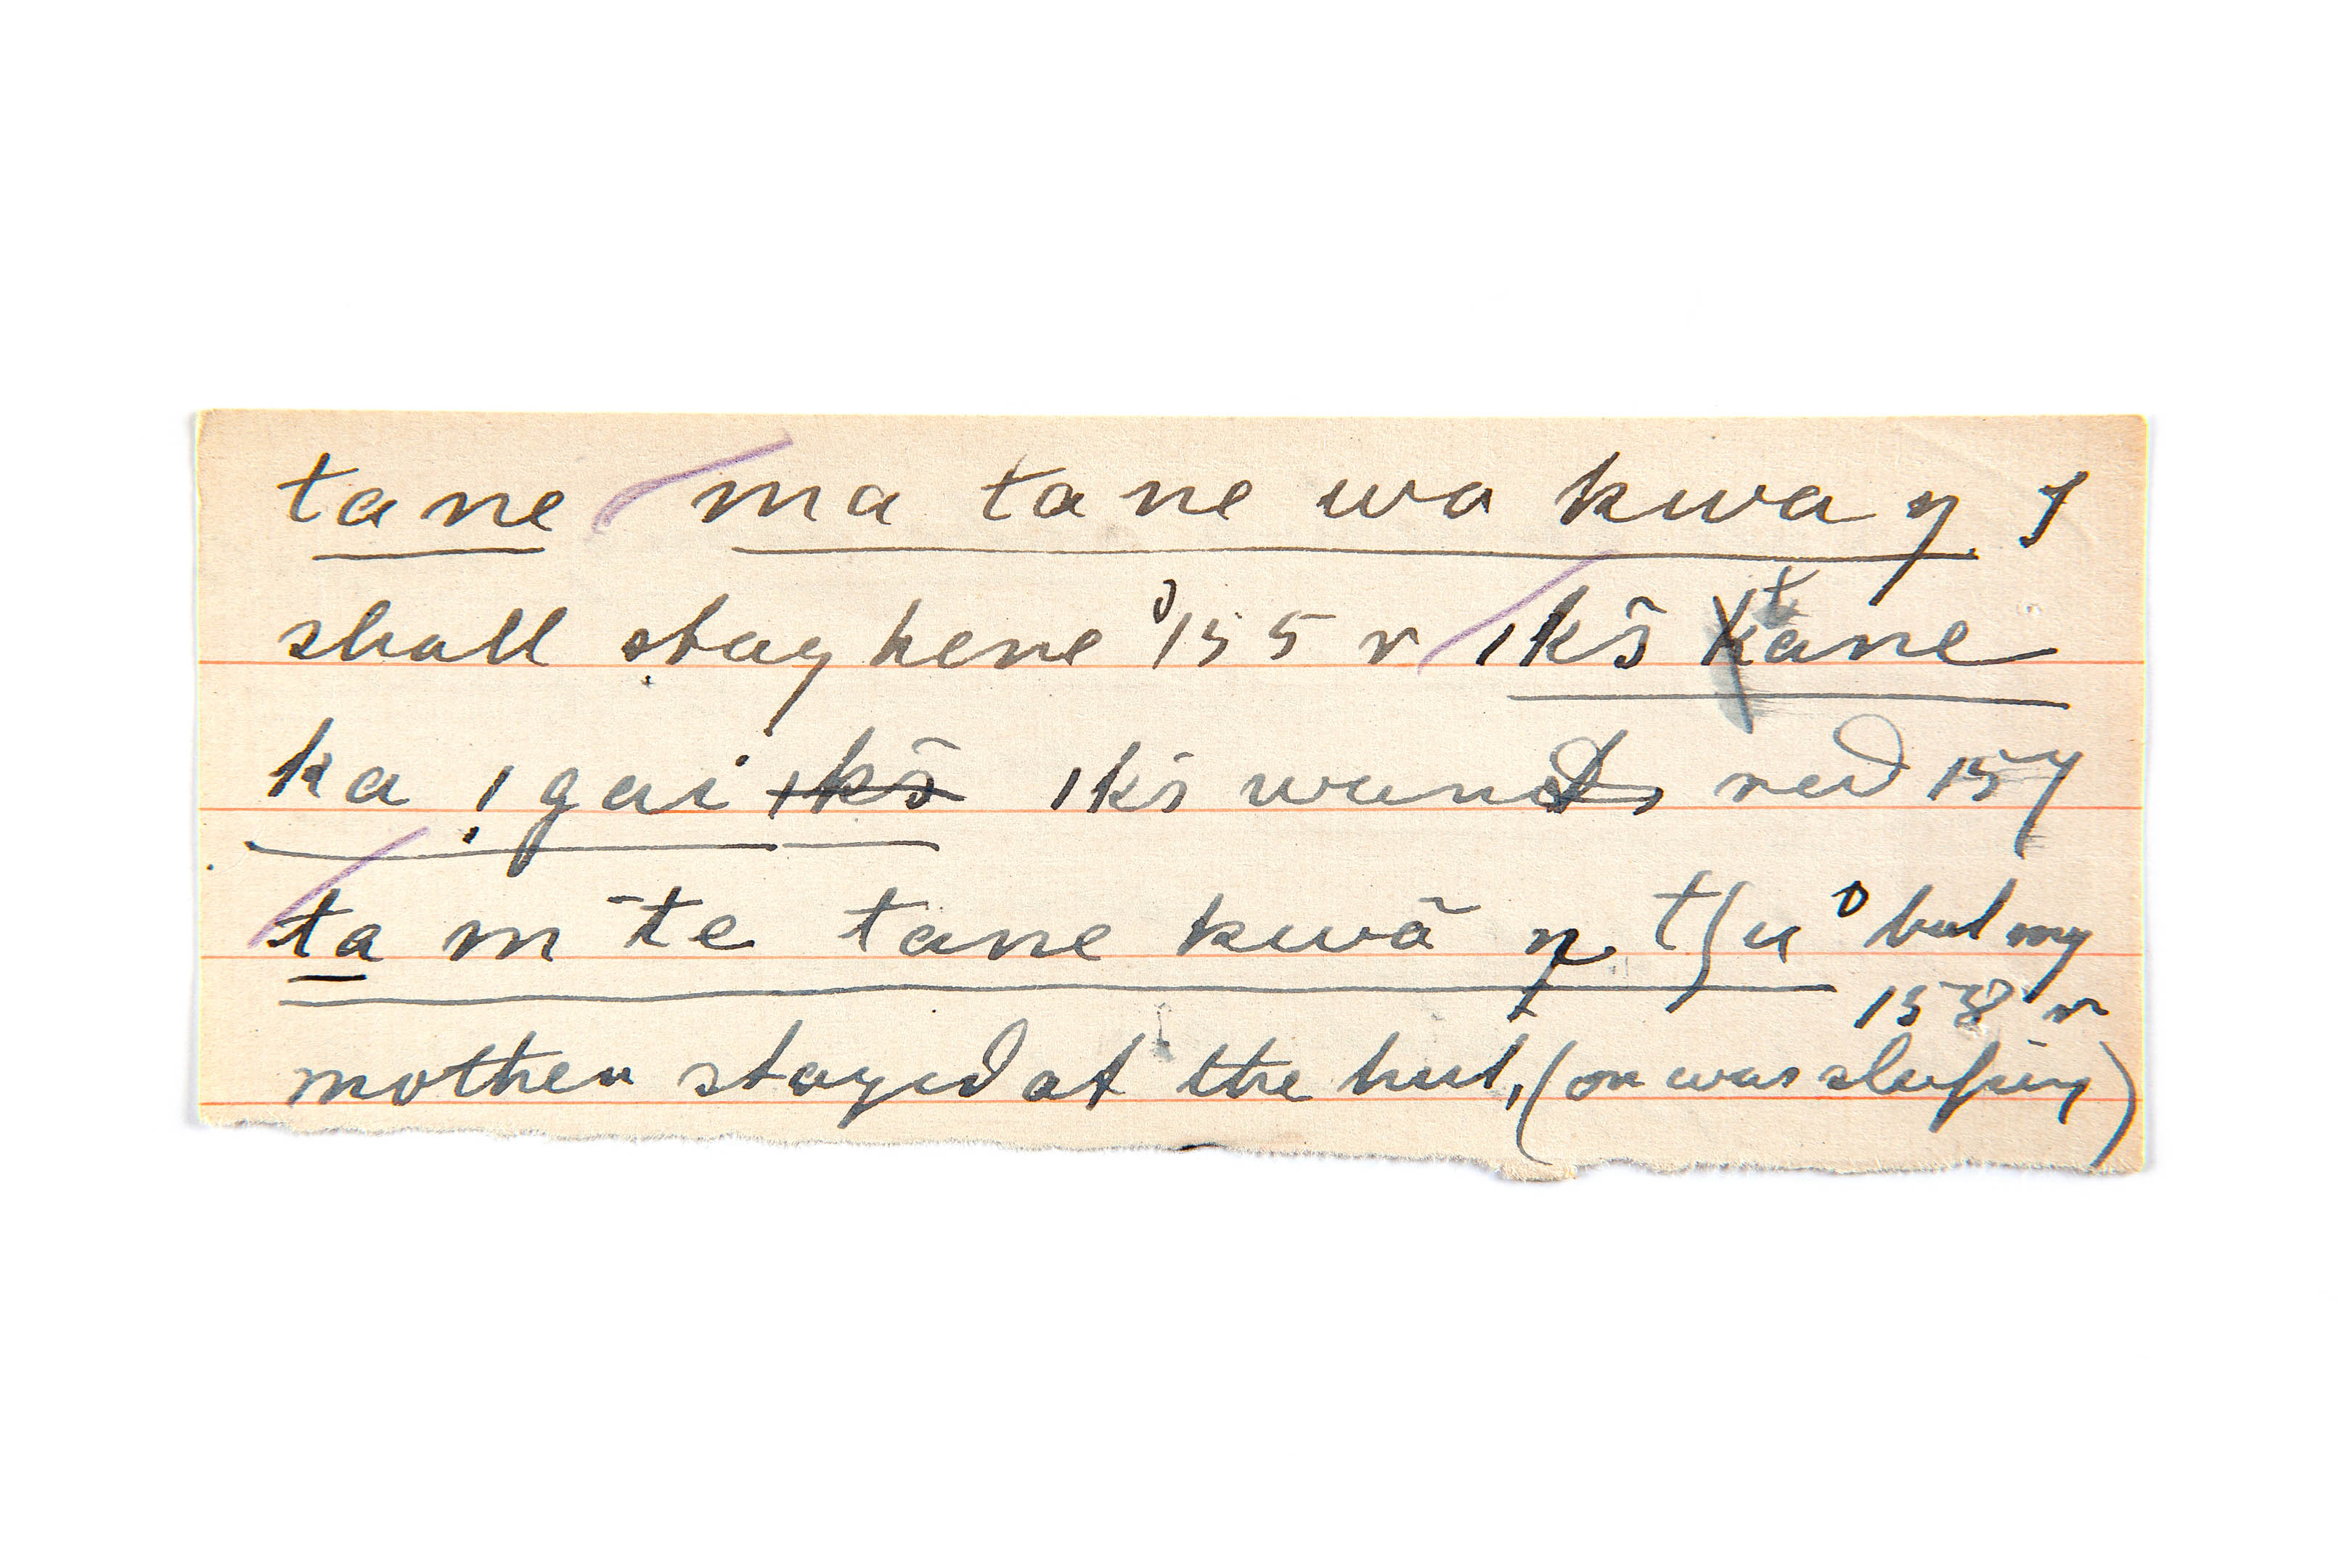 tane ma tane wa kwa ŋ I
shall stay here 155 r ıkš tane
ka !gai ıkš ıkš wands red 157
ta m te tane kwā ŋ tʃu but my
158 r
mother stayed at the hut, (or was sleeping)